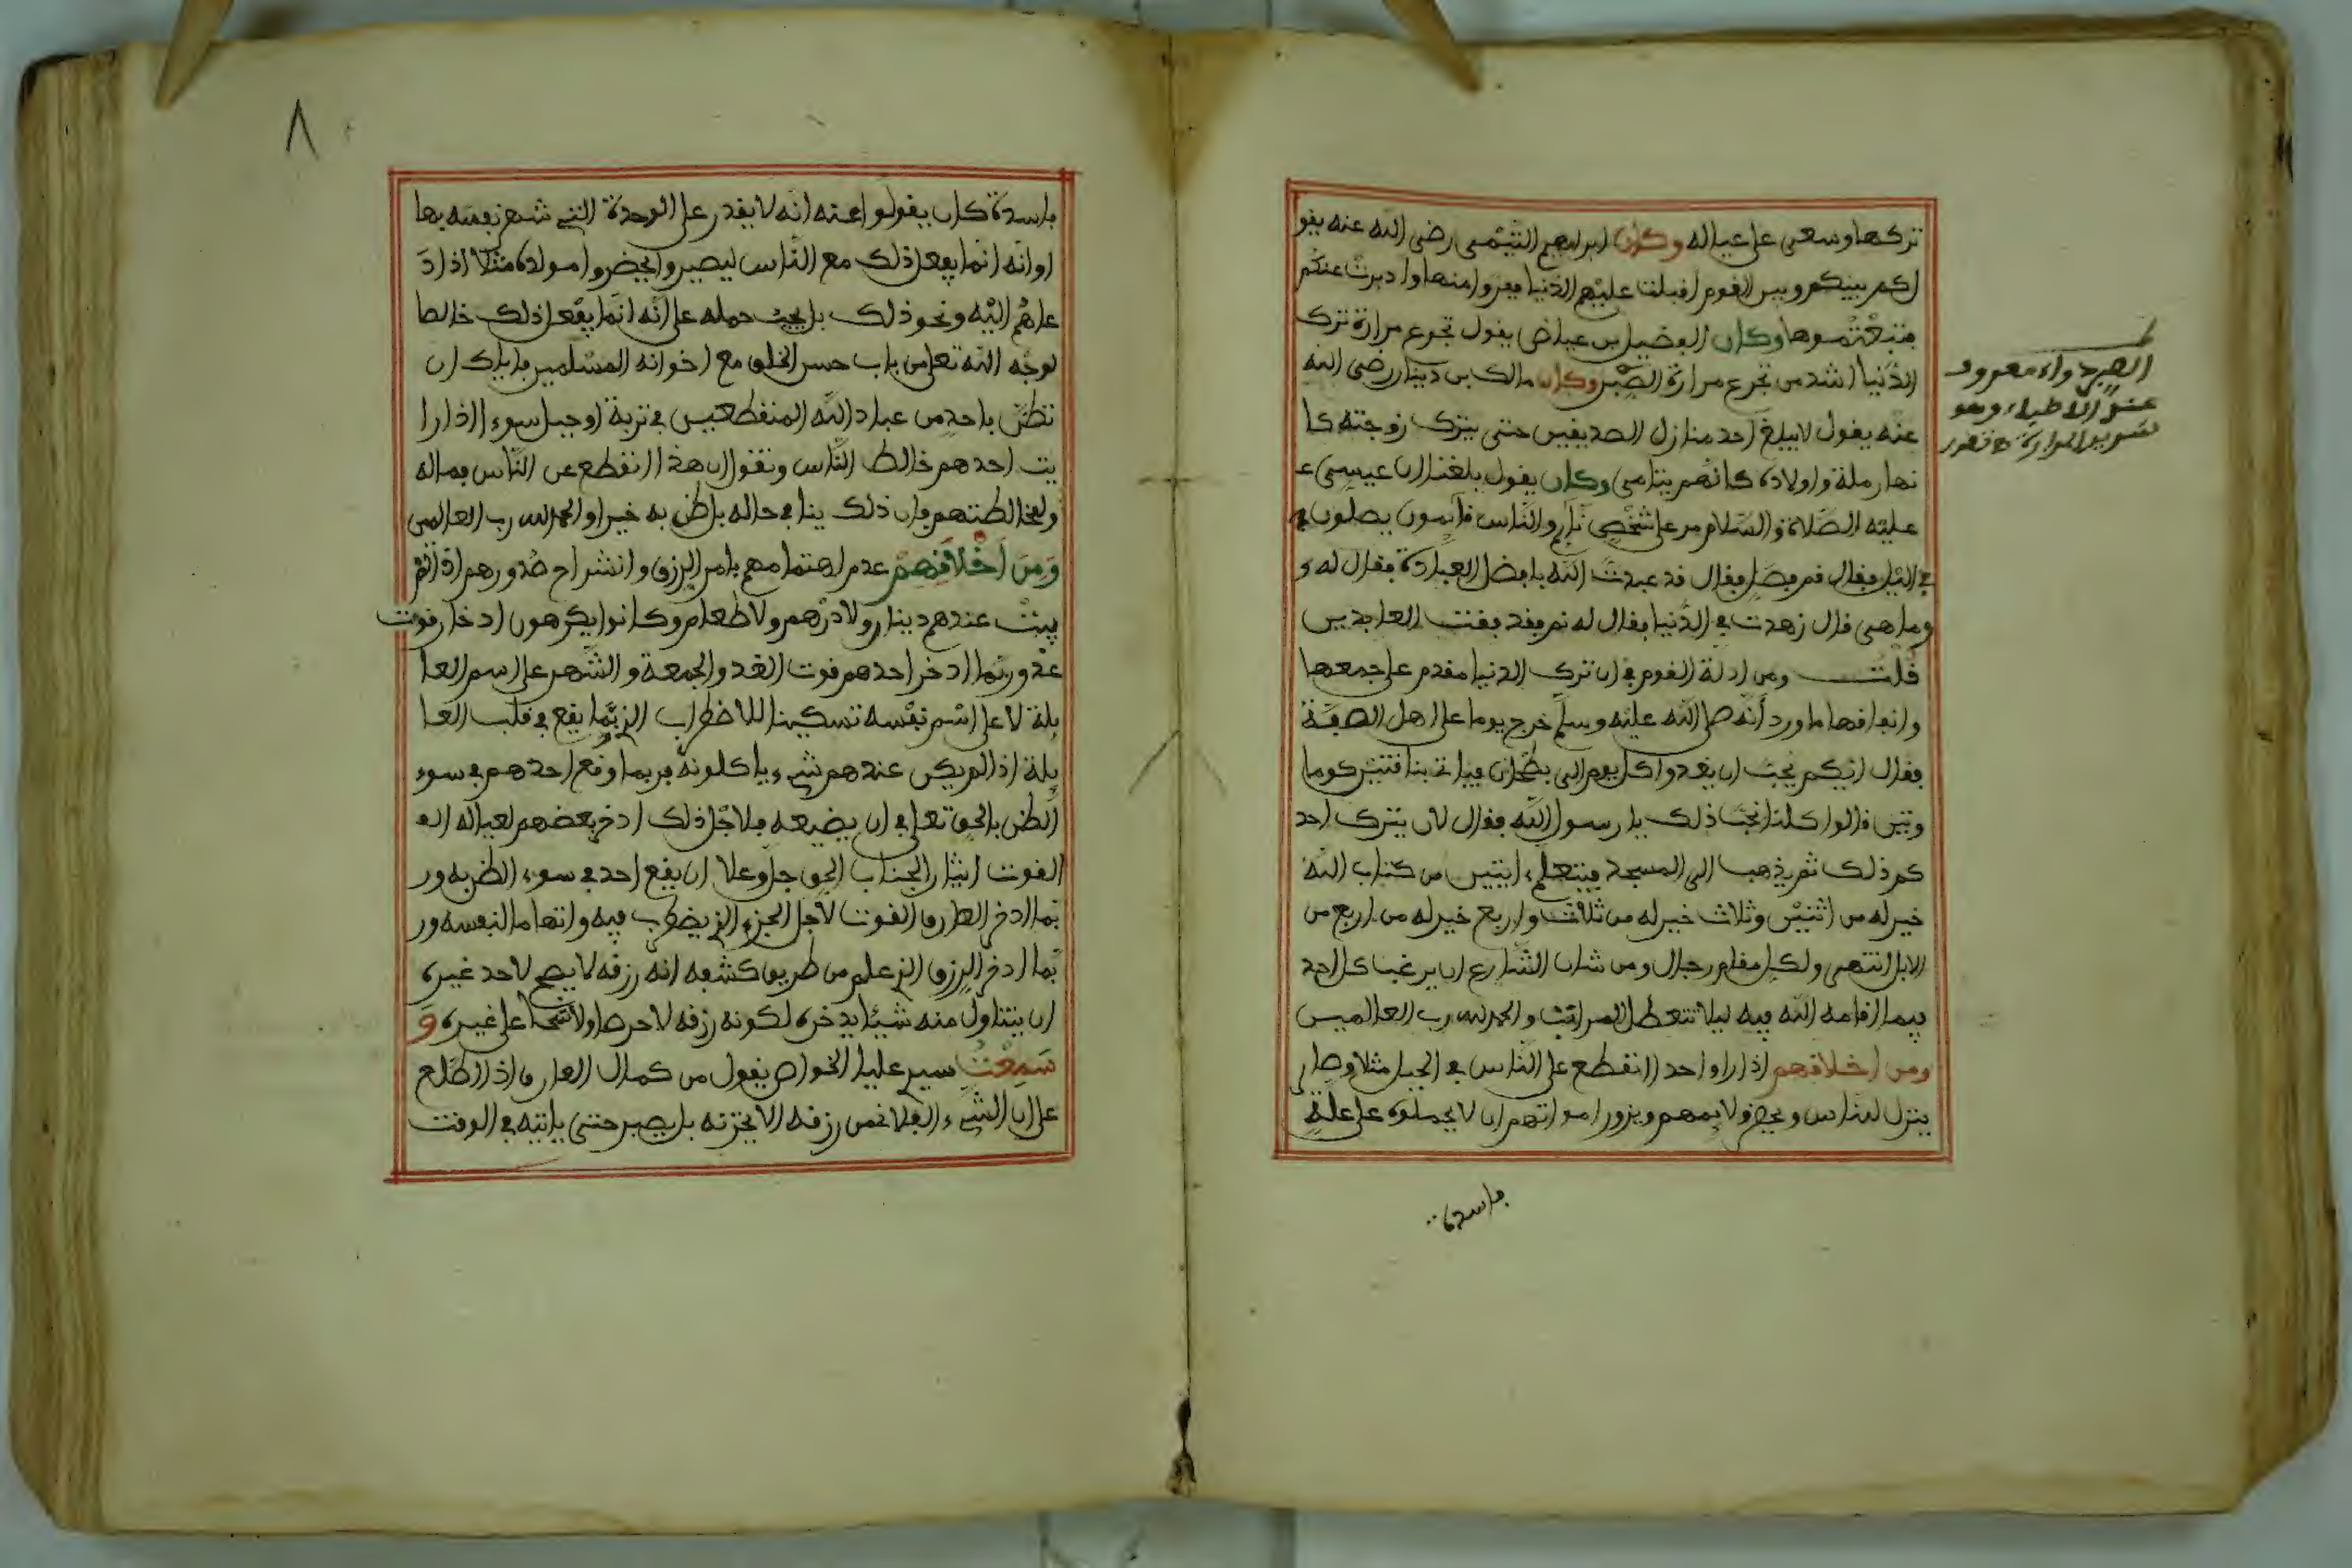 تركها وسعى على عياله وكان ابراهيم التيمي رضي الله عنه يقو
لكم بينكم وبين القوم اقبلت عليهم الدنيا ففروا منها وادبرت عنكم
فتبعتموها وكان الفضيل بن عياض يقول تجرع مرارة ترك
الدنيا اشد من تجرع مرارة الصبر وكان مالك بن دينار رضي الله
عنه يقول لا يبلغ احد منازل الصديقين حتى يترك زوجته كا
نها رملة واولاده كانهم يتامى وكان يقول بلغنا ان عيسى ع
عليه الصلاة والسلام مر على شخص نايم والناس قآيمون يصلون في
في الليل فقال قم فصل فقال قد عبدت الله بافضل العبادة فقال له و
وما هي قال زهدت في الدنيا فقال له نم فقد فقت العابدين
قلت ومن ادلة القوم في ان ترك الدنيا مقدم على جمعها
وانفاقها ما ورد أنه صلى الله عليه وسلم خرج يوما على اهل الصفة
فقال ايكم يحب ان يغدوا كل يوم الى بطحان فياتينا بنافتين كوما
وين قالوا كلنا نحب ذلك يا رسول الله فقال لان يترك احد
كم ذلك ثم يذهب الى المسجد فيتعلم ءايتين من كتاب الله
خير له من اثنين وثلاث خير له من ثلاث واربع خير له من اربع من
الابل انتهى ولكل مقام رجال ومن شان الشارع ان يرغب كل احد
فيما اقامه الله فيه ليلا تتعطل المراتب والحمد لله رب العالمين
ومن اخلاقهم اذا راوا احدا انقطع على الناس في الجبل مثلا وصار
ينزل للناس ويحضر ولايمهم ويزور امواتهم ان لا يحملوه على علة
فاسدة
الصبر دواء معروف
عند الاطباء وهو
شديد المرارة
٨
فاسدة كان يقولوا عنه انه لا يقدر على الوحدة التي شهر نفسه بها
او انه انما يفعل ذلك مع الناس ليصيروا يحضروا مولده مثلا اذا د
عاهم اليه ونحو ذلك بل يجب حمله على انه انما يفعل ذلك خالصا
لوجه الله تعلى من باب حسن الخلق مع اخوانه المسلمين فاياك ان
تظن باحد من عباد الله المنقطعين في تربة او جبل سوءا اذا را
يت احدهم خالط الناس وتقول ان هذا انقطع عن الناس فماله
ولمخالطتهم فان ذلك ينافي حاله بل ظن به خيرا والحمد لله رب العالمين
ومن اخلاقهم عدم اهتمامهم بامر الرزق وانشراح صدورهم اذا لم
يبت عندهم دينار ولا درهم ولا طعام وكانوا يكرهون ادخار قوت
غد وربما ادخر احدهم قوت الغد والجمعة والشهر على اسم العا
يلة لا على اسم نفسه تسكينا للاضطراب الذي ربما يقع في قلب العا
يلة اذا لم يكن عندهم شيء ياكلونه فربما وقع احدهم في سوء
الظن بالحق تعلى في ان يضيعه فلاجل ذلك ادخر بعضهم لعياله
القوت ايثارا لجناب الحق جل وعلا ان يقع احد في سوء الظن به ور
بما ادخر العارف القوت لاجل الجزء الذي يضطرب فيه واتهاما لنفسه ور
بما ادخر الرزق الذي علم من طريق كشفه انه رزقه لا يصح لاحد غيره
ان يتناول منه شيئا يدخره لكونه رزقه لا حرصا ولا شحا على غيره و
سمعت سيدي عليا الخواص يقول من كمال العارف اذا اطلع
على ان الشيء الفلاني من رزقه الا يخزنه بل يصبر حتى ياتيه في الوقت